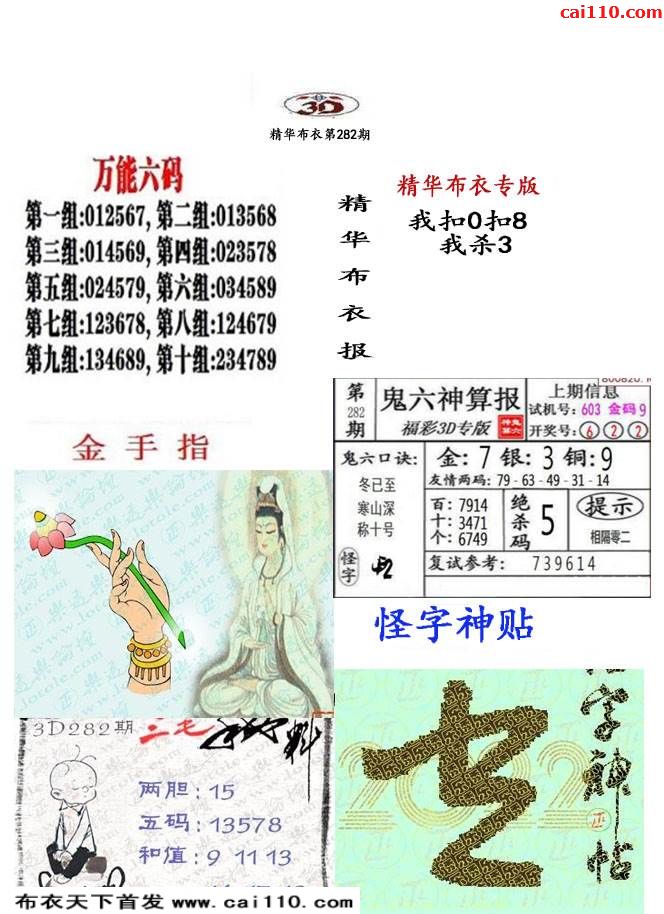 cai110.com
3D
精华布衣第282期
万能六码
第一组:012567,第二组:013568
第三组:014569,第四组:023578
第五组:024579,第六组:034589
第七组:123678,第八组:124679
第九组:134689,第十组:234789
精华布衣报
精华布衣专版
我扣0扣8
我杀3
金手指
第282期
鬼六神算报
福彩3D专版
上期信息
试机号:603 金码9
开奖号:6 2 2
鬼六口诀:
冬已至
寒山深
称十号
怪字
金:7 银:3 铜:9
友情两码:79-63-49-31-14
百:7914
十:3471
个:6749
绝杀码
5
提示
相隔零二
复试参考: 739614
怪字神贴
怪字神帖
3D282期
三毛
两胆:15
五码:13578
和值:9 11 13
布衣天下首发 www.cai110.com